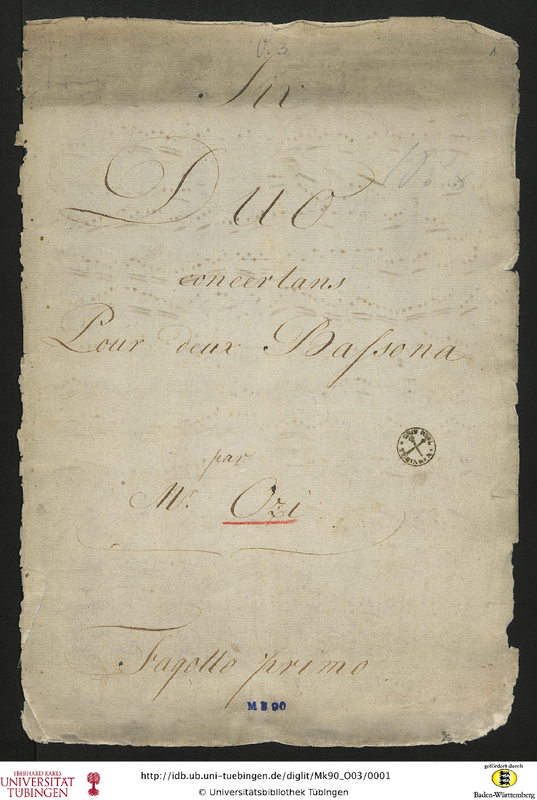 V. 3
1
Six
Duo
concertans
Pour deux Bassons
par
Mr. Ozi
Fagotto primo
M k 90
EBERHARD KARLS
UNIVERSITÄT
TÜBINGEN
http://idb.ub.uni-tuebingen.de/diglit/Mk90_O03/0001
© Universitätsbibliothek Tübingen
gefördert durch
Baden-Württemberg